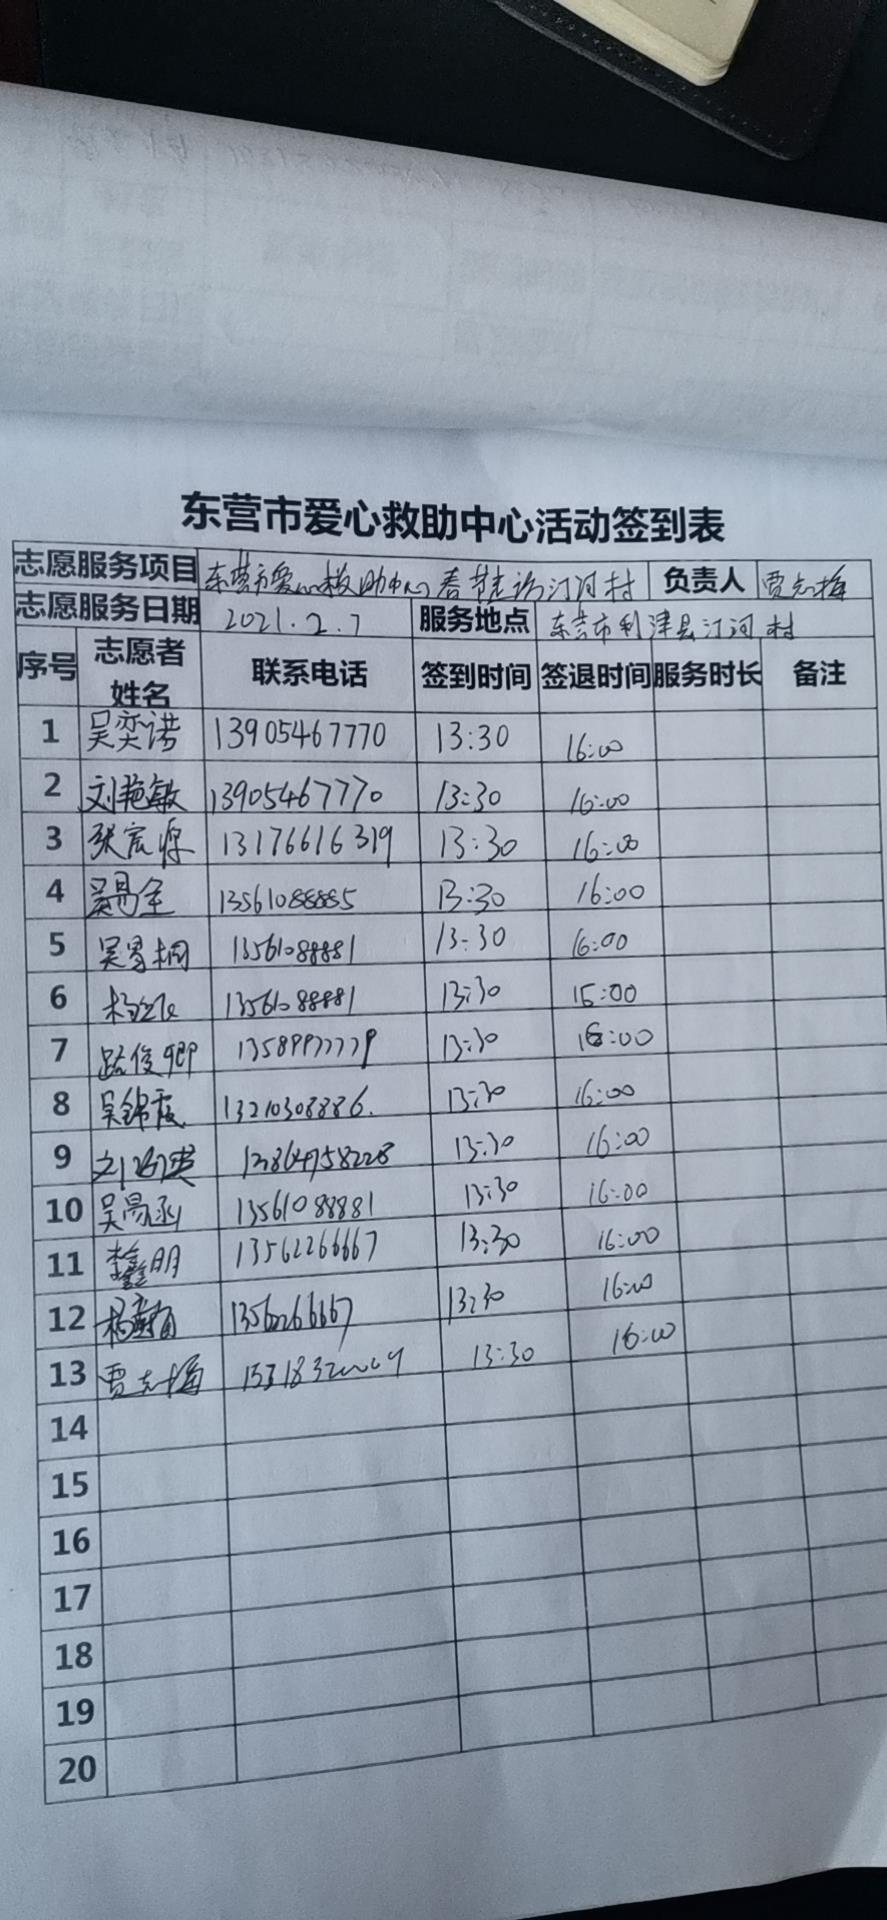 东营市爱心救助中心活动签到表
志愿服务项目 东营市爱心救助中心春节走访汀河村 负责人 贾志梅
志愿服务日期 2021.2.7 服务地点 东营市利津县汀河村
序号 志愿者姓名 联系电话 签到时间 签退时间 服务时长 备注
1 吴奕诺 13905467770 13:30 16:00
2 刘艳敏 13905467770 13:30 16:00
3 张宸源 13176616319 13:30 16:00
4 吴昜全 13561088885 13:30 16:00
5 吴 桐 13561088881 13:30 16:00
6 13561088881 13:30 16:00
7 路俊卿 13589977779 13:30 16:00
8 吴锦霞 13210308886. 13:30 16:00
9 刘 英 13864758228 13:30 16:00
10 吴 13561088881 13:30 16:00
11 李鑫明 13562266667 13:30 16:00
12 杨 13562266667 13:30 16:00
13 贾志梅 13:30 16:00
14
15
16
17
18
19
20